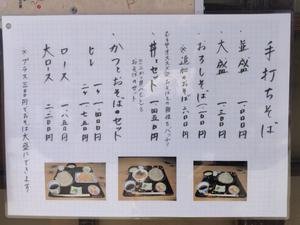 手打ちそば
・並盛 八〇〇円
・大盛 一〇〇〇円
・おろしそば 一一〇〇円
※追加のおそば 二〇〇円
・丼セット 一四五〇円
・かつとおそばのセット
ヒレ 一ケ 一四〇〇円
二ケ 一七五〇円
ロース 一八五〇円
大ロース 二二〇〇円
※プラス三〇〇円でおそば大盛にできます。